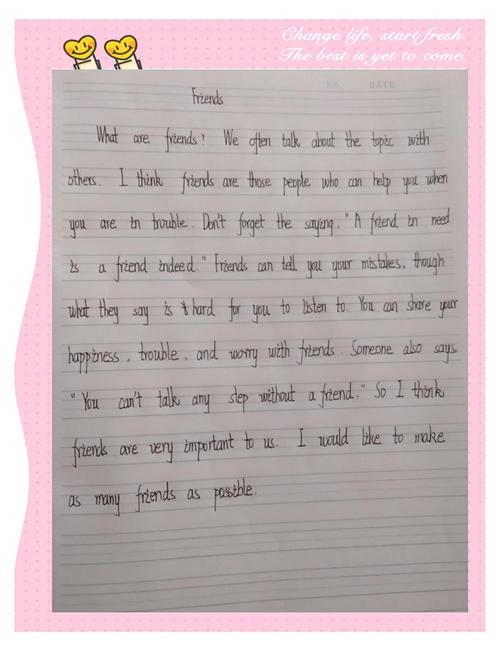 Change life, start fresh.
The best is yet to come.
NO. DATE
Friends
What are friends? We often talk about the topic with
others. I think friends are those people who can help you when
you are in trouble. Don't forget the saying. "A friend in need
is a friend indeed." Friends can tell you your mistakes, though
what they say is hard for you to listen to. You can share your
happiness, trouble, and worry with friends. Someone also says,
"You can't talk any step without a friend." So I think
friends are very important to us. I would like to make
as many friends as possible.